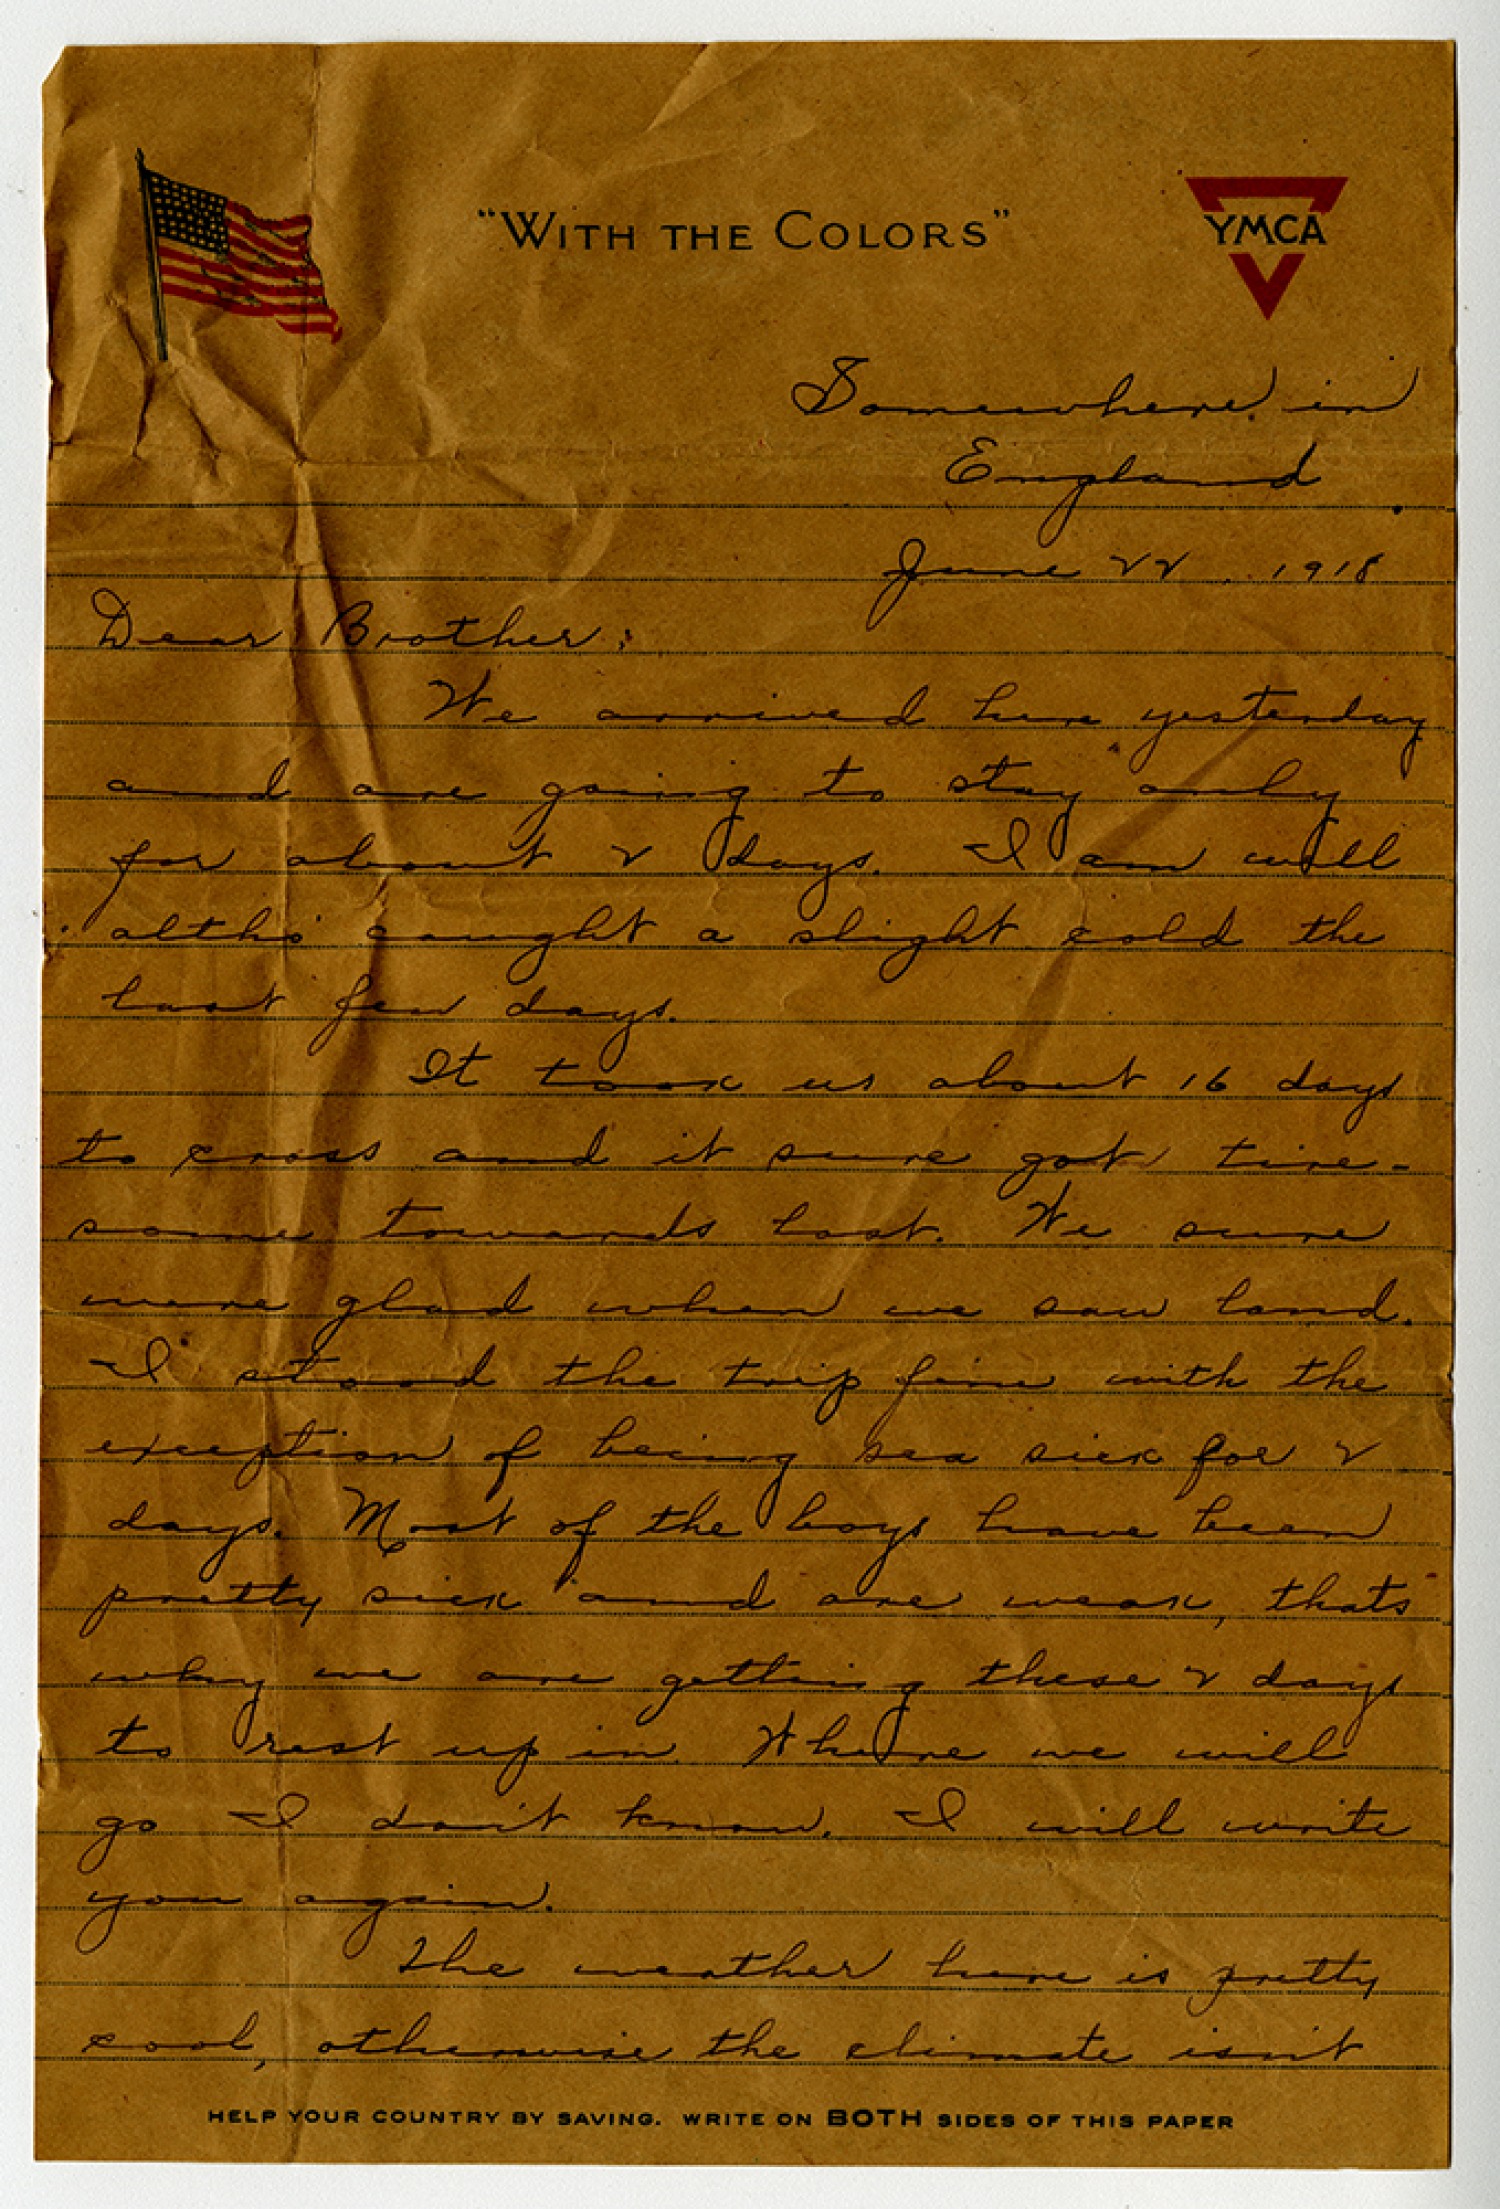 "WITH THE COLORS"
YMCA
Somewhere in
England.
June 22, 1918
Dear Brother:
We arrived here yesterday
and are going to stay only
for about 2 days. I am well
altho' caught a slight cold the
last few days.
It took us about 16 days
to cross and it sure got tire-
some towards last. We sure
were glad when we saw land.
I stood the trip fine with the
exception of being sea sick for 2
days. Most of the boys have been
pretty sick and are weak, thats
why we are getting these 2 days
to rest up in. Where we will
go I don't know. I will write
you again.
The weather here is pretty
cool, otherwise the climate isn't
HELP YOUR COUNTRY BY SAVING. WRITE ON BOTH SIDES OF THIS PAPER